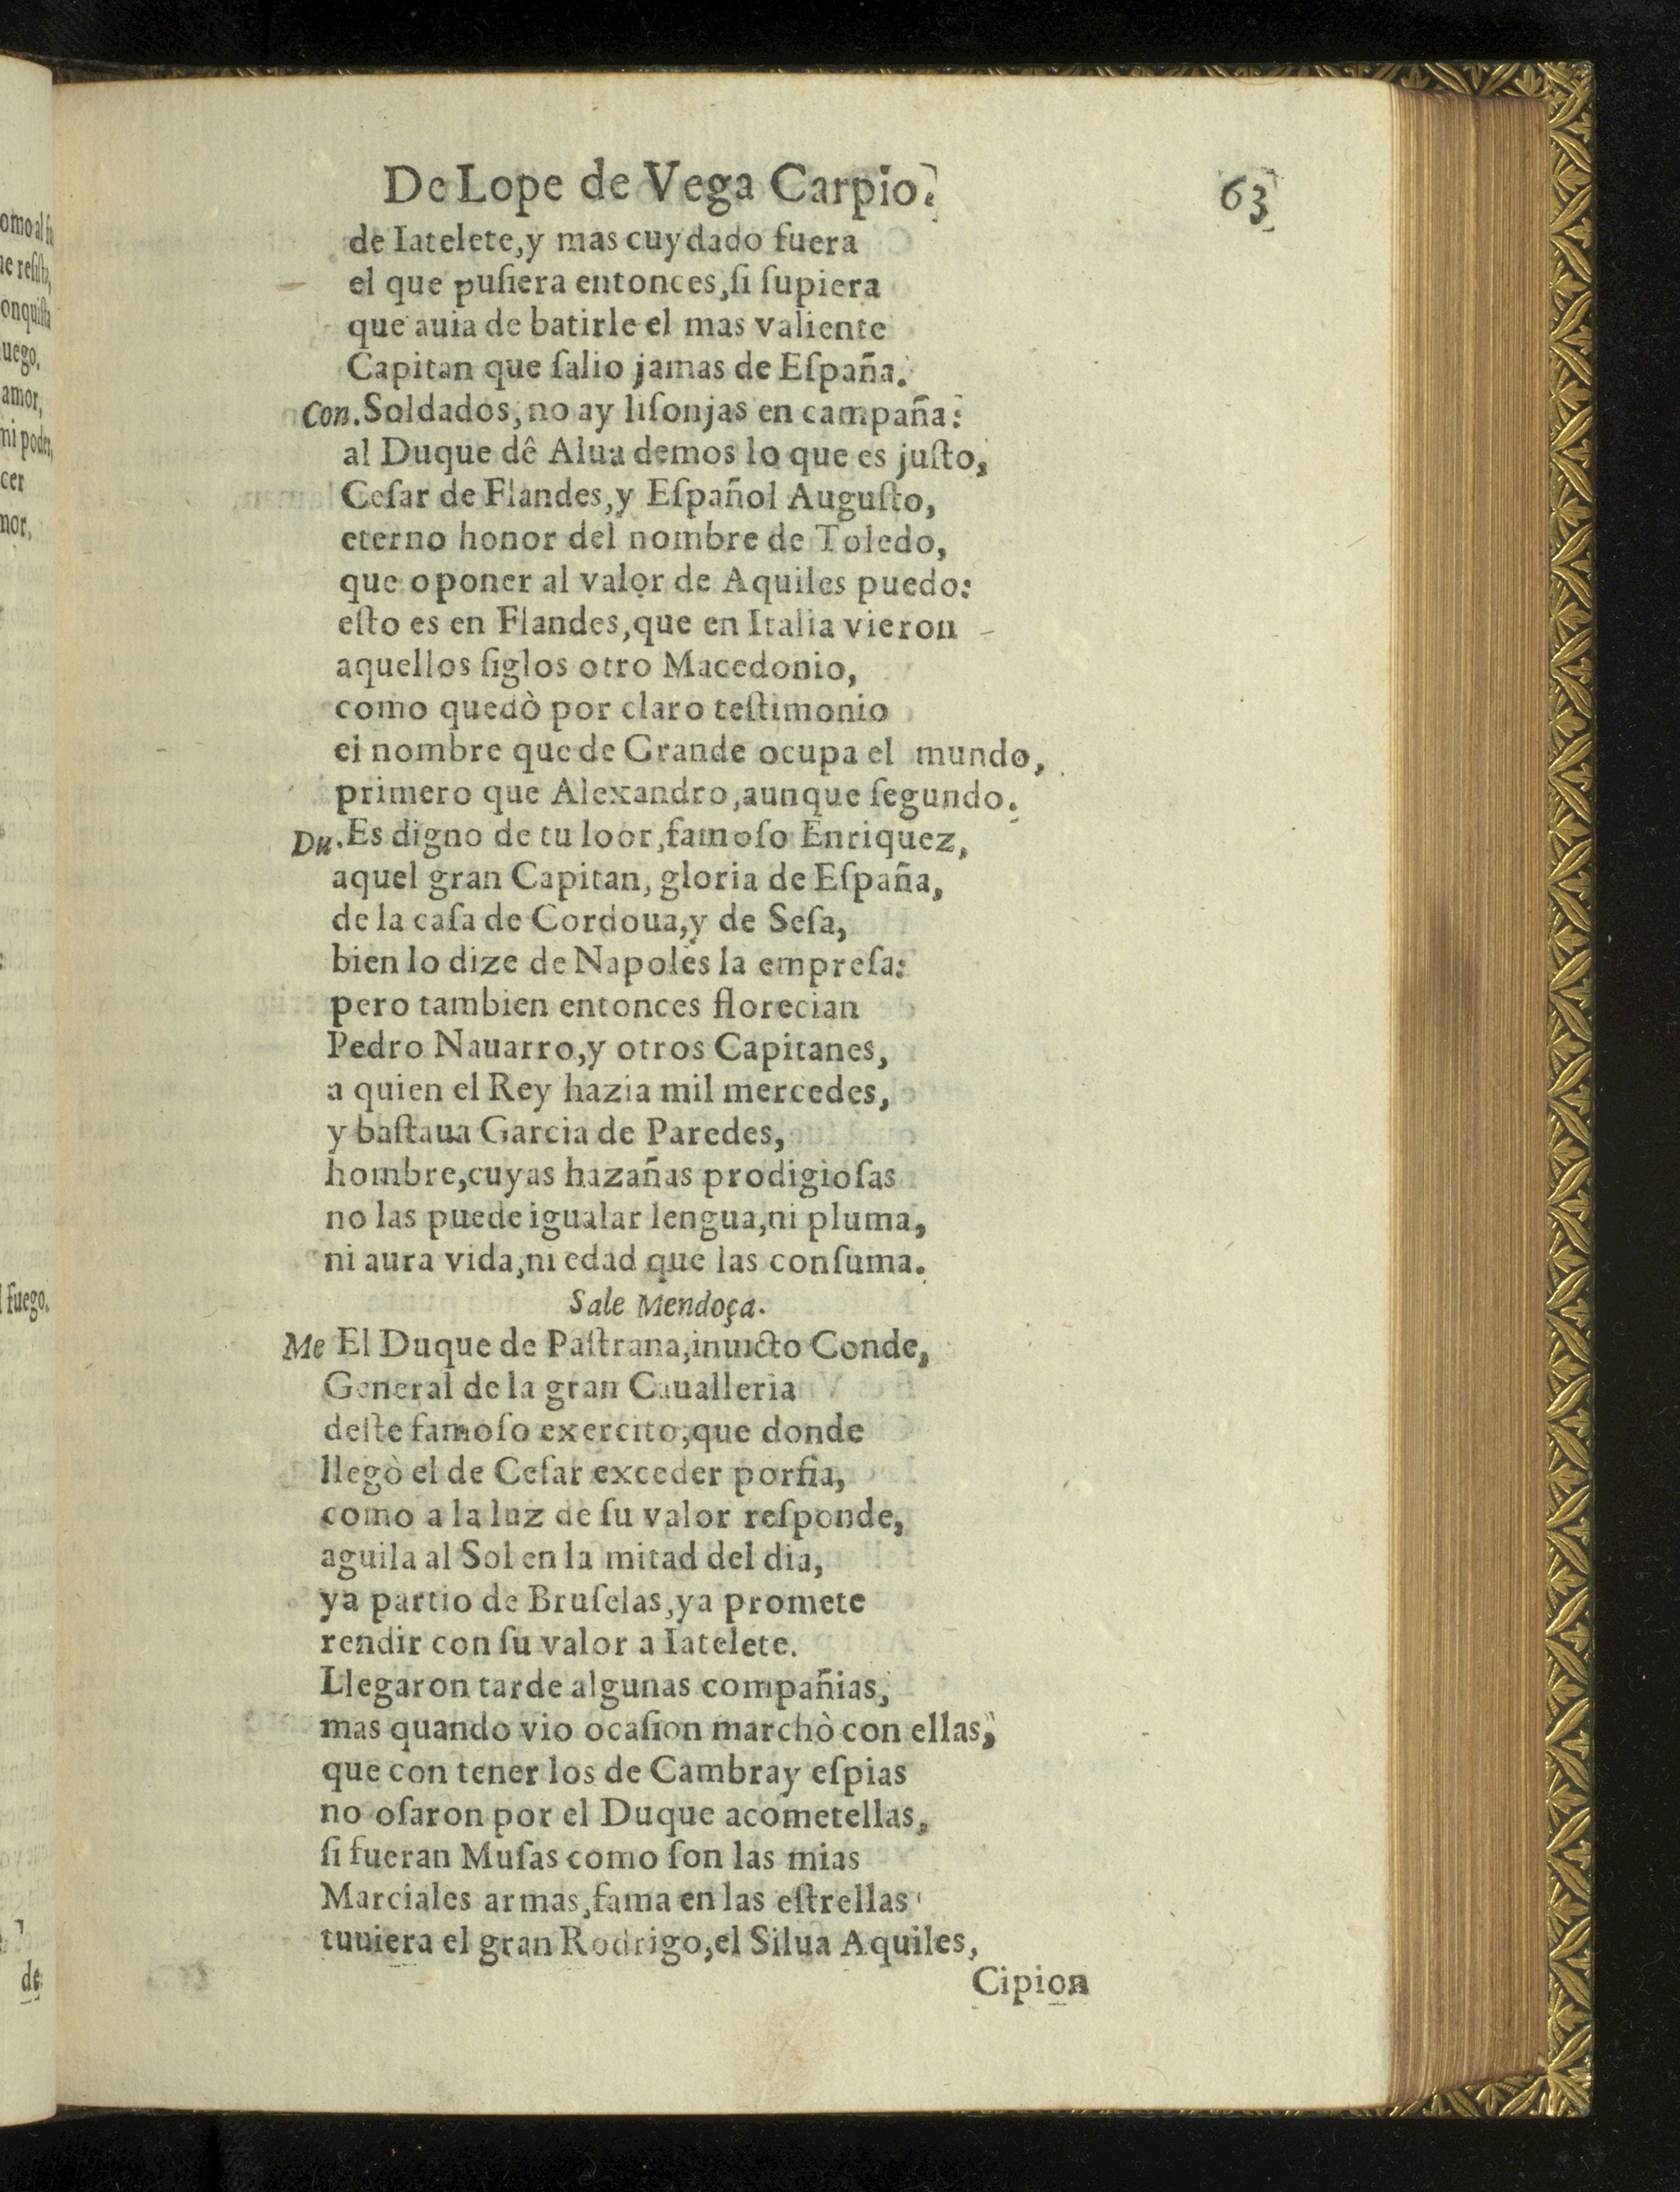 De Lope de Vega Carpio.
63
de Iatelete,y mas cuydado fuera
el que puſiera entonces,ſi ſupiera
que auia de batirle el mas valiente
Capitan que ſalio jamas de Eſpaña.
Con.Soldados,no ay liſonjas en campaña:
al Duque dê Alua demos lo que es juſto,
Ceſar de Flandes,y Eſpañol Auguſto,
eterno honor del nombre de Toledo,
que oponer al valor de Aquiles puedo:
eſto es en Flandes,que en Italia vieron
aquellos ſiglos otro Macedonio,
como quedò por claro teſtimonio
el nombre que de Grande ocupa el mundo,
primero que Alexandro,aunque ſegundo.
Du.Es digno de tu loor,famoſo Enriquez,
aquel gran Capitan, gloria de Eſpaña,
de la caſa de Cordoua,y de Seſa,
bien lo dize de Napoles la empreſa:
pero tambien entonces florecian
Pedro Nauarro,y otros Capitanes,
a quien el Rey hazia mil mercedes,
y baſtaua Garcia de Paredes,
hombre,cuyas hazañas prodigioſas
no las puede igualar lengua,ni pluma,
ni aura vida,ni edad que las conſuma.
Sale Mendoça.
Me El Duque de Paſtrana,inuicto Conde,
General de la gran Caualleria
deſte famoſo exercito,que donde
llegò el de Ceſar exceder porfia,
como a la luz de ſu valor reſponde,
aguila al Sol en la mitad del dia,
ya partio de Bruſelas,ya promete
rendir con ſu valor a Iatelete.
Llegaron tarde algunas compañias,
mas quando vio ocaſion marchò con ellas,
que con tener los de Cambray eſpias
no oſaron por el Duque acometellas,
ſi fueran Muſas como ſon las mias
Marciales armas,fama en las eſtrellas
tuuiera el gran Rodrigo,el Silua Aquiles,
Cipion